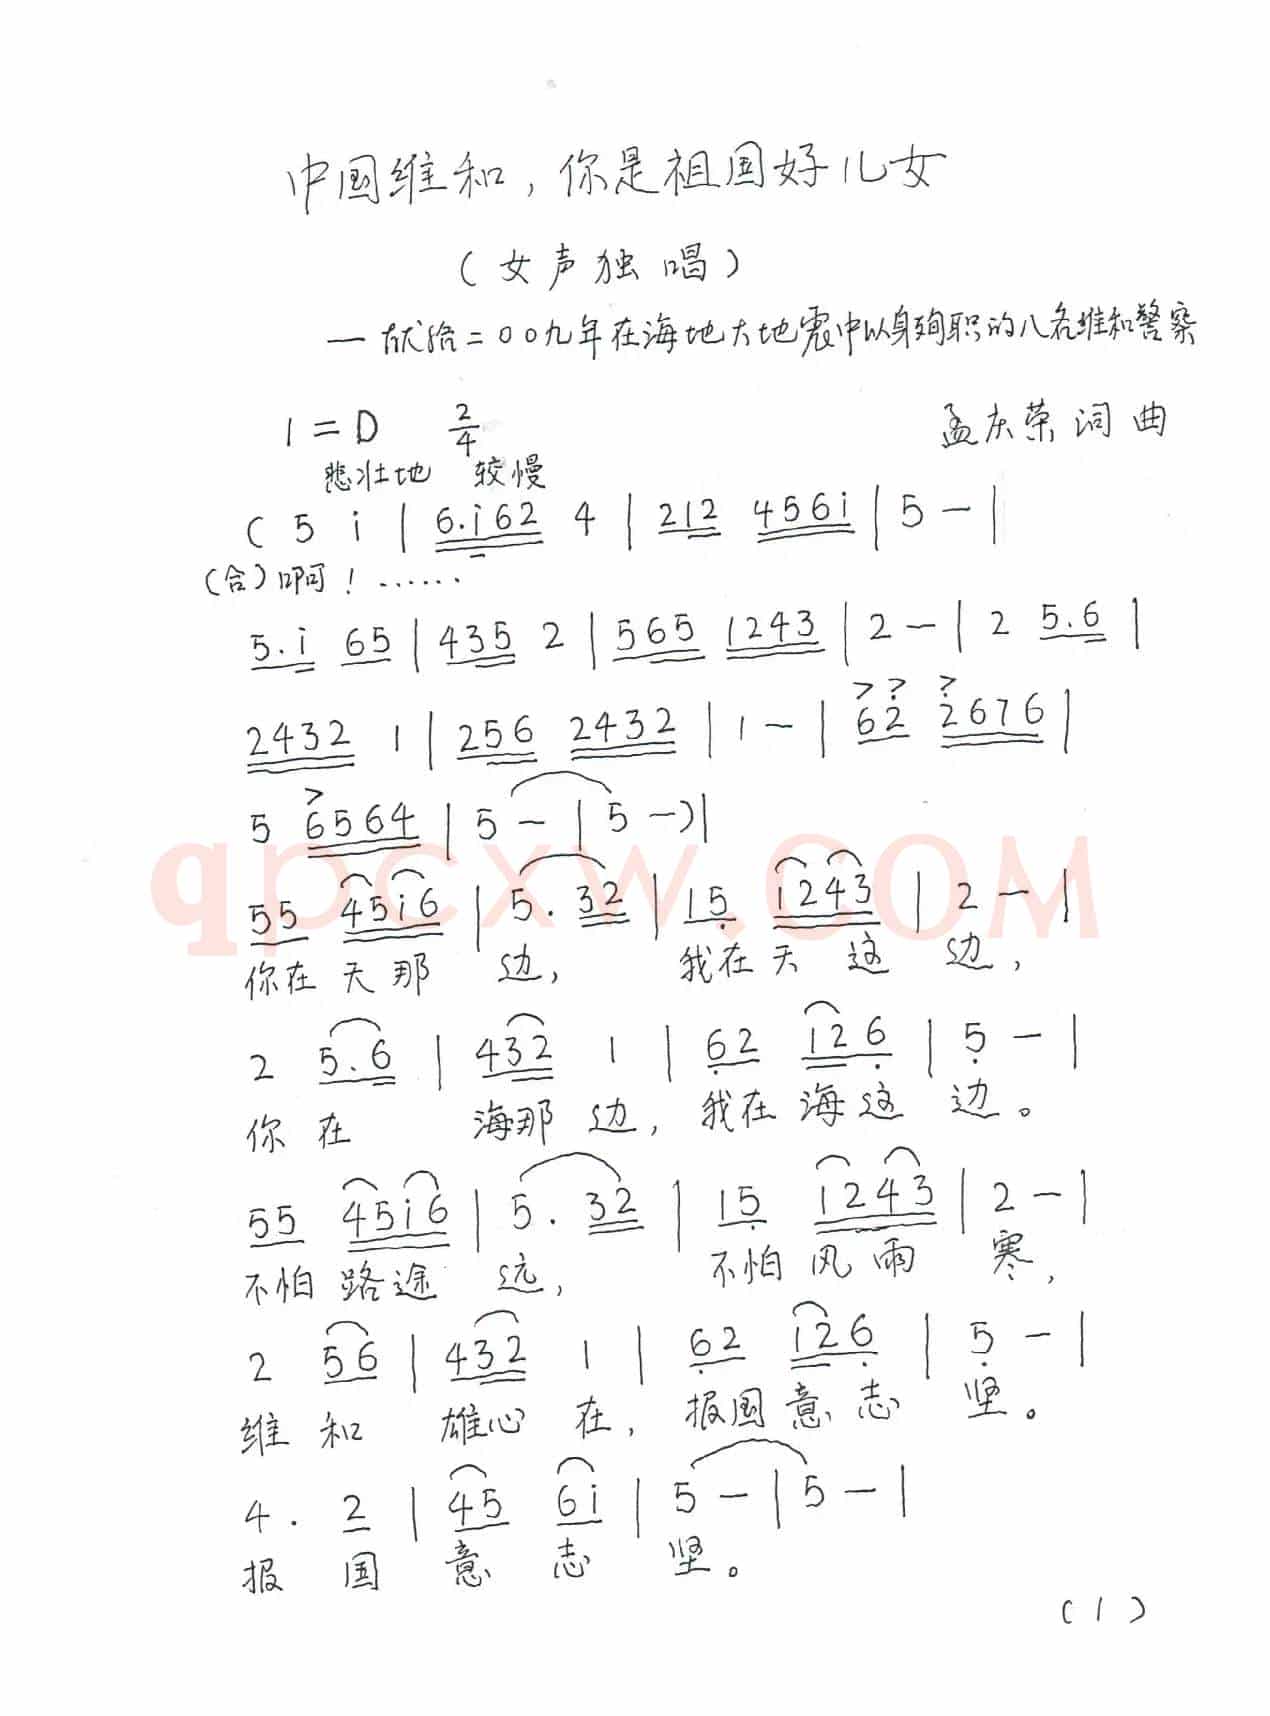 中国维和，你是祖国好儿女
（女声独唱）
— 献给二00九年在海地大地震中以身殉职的八名维和警察
1=D 2/4
孟庆荣 词曲
悲壮地 较慢
( 5 i | 6.i62 4 | 212 456i | 5 — |
（合）啊！……
5.i 65 | 435 2 | 565 1243 | 2 — | 2 5.6 |
2432 1 | 256 2432 | 1 — | 62 2676 |
5 6564 | 5 — | 5 —)|
qpcxw.COM
55 45i6 | 5. 32 | 15 1243 | 2 — |
你在天那边，我在天这边，
2 5.6 | 432 1 | 62 126 | 5 — |
你在海那边，我在海这边。
55 45i6 | 5. 32 | 15 1243 | 2 — |
不怕路途远，不怕风雨寒，
2 56 | 432 1 | 62 126 | 5 — |
维和雄心在，报国意志坚。
4. 2 | 45 6i | 5 — | 5 — |
报国意志坚。
（1）